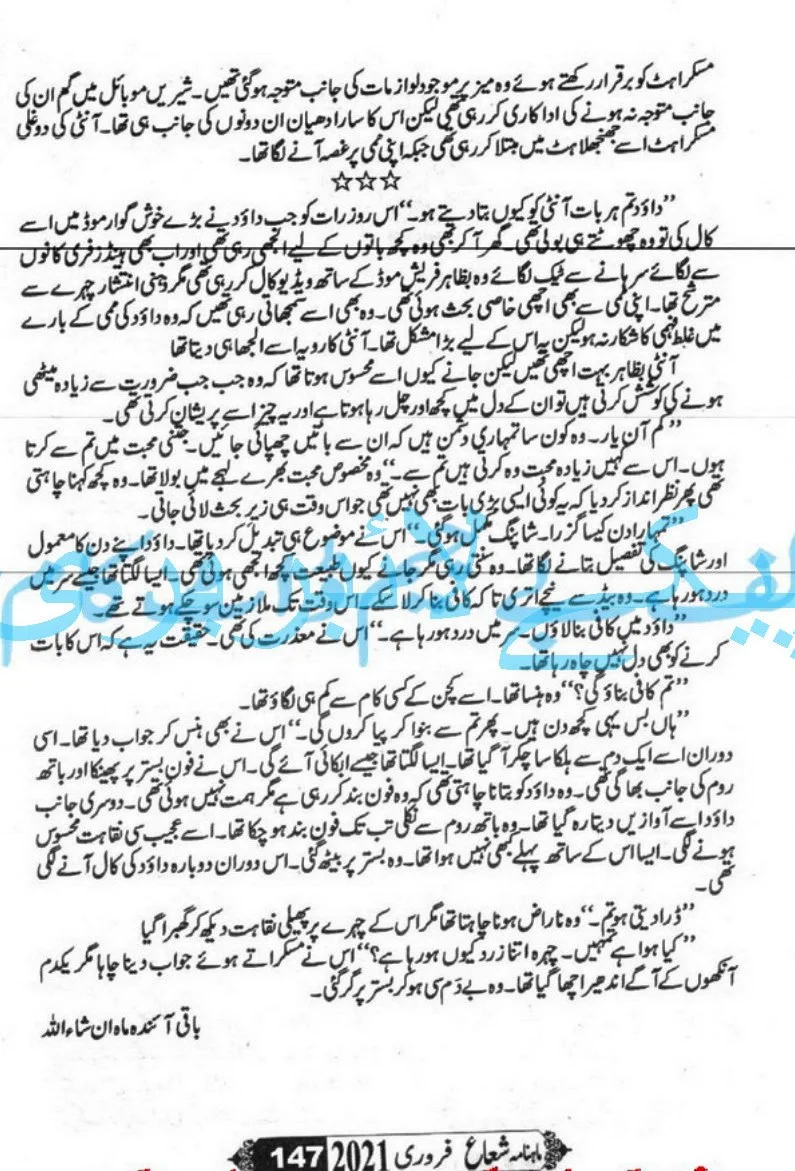 مسکراہٹ کو برقرار رکھتے ہوئے وہ میز پر موجود لوازمات کی جانب متوجہ ہو گئی تھیں۔ شیریں موبائل میں گم ان کی
جانب متوجہ نہ ہونے کی اداکاری کر رہی تھی لیکن اس کا سارا دھیان ان دونوں کی جانب ہی تھا۔ آنٹی کی دوغلی
مسکراہٹ اسے جھنجھلاہٹ میں مبتلا کر رہی تھی جبکہ اپنی ممی پر غصہ آنے لگا تھا۔
☆☆☆
”داؤد تم ہر بات آنٹی کو کیوں بتا دیتے ہو۔“ اس روز رات کو جب داؤد نے بڑے خوش گوار موڈ میں اسے
کال کی تو وہ چھوٹتے ہی بولی تھی۔ گھر آ کر بھی وہ کچھ باتوں کے لیے الجھی رہی تھی اور اب بھی ہینڈز فری کانوں
سے لگائے سرہانے سے ٹیک لگائے وہ بظاہر فریش موڈ کے ساتھ ویڈیو کال کر رہی تھی مگر ذہنی انتشار چہرے سے
مترشح تھا۔ اپنی ممی سے بھی اچھی خاصی بحث ہوئی تھی۔ وہ بھی اسے سمجھاتی رہی تھیں کہ وہ داؤد کی ممی کے بارے
میں غلط فہمی کا شکار نہ ہو لیکن یہ اس کے لیے بڑا مشکل تھا۔ آنٹی کا رویہ اسے الجھا ہی دیتا تھا
آنٹی بظاہر بہت اچھی تھیں لیکن جانے کیوں اسے محسوس ہوتا تھا کہ وہ جب جب ضرورت سے زیادہ میٹھی
ہونے کی کوشش کرتی ہیں تو ان کے دل میں کچھ اور چل رہا ہوتا ہے اور یہ چیز اسے پریشان کرتی تھی۔
”کم آن یار۔ وہ کون سا تمہاری دشمن ہیں کہ ان سے باتیں چھپائی جائیں۔ جتنی محبت میں تم سے کرتا
ہوں۔ اس سے کہیں زیادہ محبت وہ کرتی ہیں تم سے۔“ وہ مخصوص محبت بھرے لہجے میں بولا تھا۔ وہ کچھ کہنا چاہتی
تھی پھر نظر انداز کر دیا کہ یہ کوئی ایسی بڑی بات بھی نہیں تھی جو اس وقت ہی زیر بحث لائی جاتی۔
”تمہارا دن کیسا گزرا۔ شاپنگ مکمل ہو گئی۔“ اس نے موضوع ہی تبدیل کر دیا تھا۔ داؤد اپنے دن کا معمول
اور شاپنگ کی تفصیل بتانے لگا تھا۔ وہ سنتی رہی مگر جانے کیوں طبیعت کچھ الجھی ہوئی تھی۔ ایسا لگتا تھا جیسے سر میں
درد ہو رہا ہے۔ وہ بیڈ سے نیچے اتری تاکہ کافی بنا کر لا سکے۔ اس وقت تک ملازمین سو چکے ہوتے تھے۔
”داؤد میں کافی بنا لاؤں۔ سر میں درد ہو رہا ہے۔“ اس نے معذرت کی تھی۔ حقیقت یہ ہے کہ اس کا بات
کرنے کو بھی دل نہیں چاہ رہا تھا۔
”تم کافی بناؤ گی؟“ وہ ہنسا تھا۔ اسے کچن کے کسی کام سے کم ہی لگاؤ تھا۔
”ہاں بس یہی کچھ دن ہیں۔ پھر تم سے بنوا کر پیا کروں گی۔“ اس نے بھی ہنس کر جواب دیا تھا۔ اسی
دوران اسے ایک دم سے ہلکا سا چکر آ گیا تھا۔ ایسا لگتا تھا جیسے ابکائی آئے گی۔ اس نے فون بستر پر پھینکا اور باتھ
روم کی جانب بھاگی تھی۔ وہ داؤد کو بتانا چاہتی تھی کہ وہ فون بند کر رہی ہے مگر ہمت نہیں ہوئی تھی۔ دوسری جانب
داؤد اسے آوازیں دیتا رہ گیا تھا۔ وہ باتھ روم سے نکلی تب تک فون بند ہو چکا تھا۔ اسے عجیب سی نقاہت محسوس
ہونے لگی۔ ایسا اس کے ساتھ پہلے کبھی نہیں ہوا تھا۔ وہ بستر پر بیٹھ گئی۔ اس دوران دوبارہ داؤد کی کال آنے لگی
تھی۔
”ڈرا دیتی ہو تم۔“ وہ ناراض ہونا چاہتا تھا مگر اس کے چہرے پر پھیلی نقاہت دیکھ کر گھبرا گیا
”کیا ہوا ہے تمہیں۔ چہرہ اتنا زرد کیوں ہو رہا ہے؟“ اس نے مسکراتے ہوئے جواب دینا چاہا مگر یکدم
آنکھوں کے آگے اندھیرا چھا گیا تھا۔ وہ بے دم سی ہو کر بستر پر گر گئی۔
باقی آئندہ ماہ ان شاء اللہ
ماہنامہ شعاع فروری 2021 147